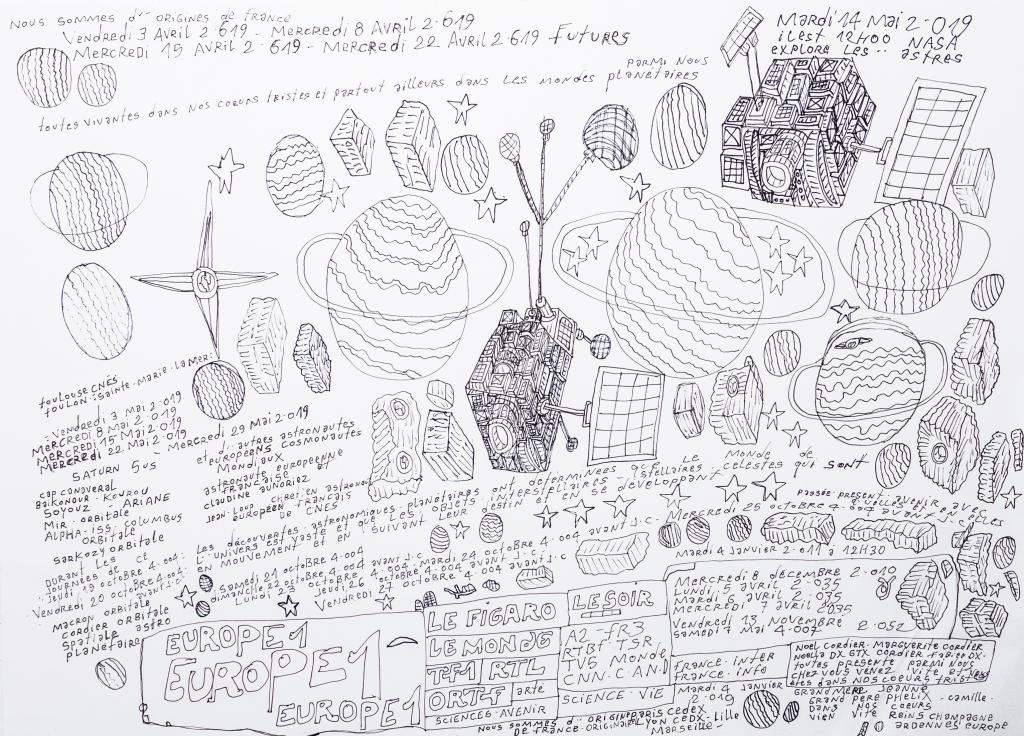 NOUS SOMMES d'' ORIGINES de FRANCE
Vendredi 3 Avril 2.619 - Mercredi 8 Avril 2.619
Mercredi 15 Avril 2.619 - Mercredi 22 Avril 2.619 Futures
Mardi 14 Mai 2.019
il est 12H00 NASA
explore Les '' astres
parmi nous
toutes vivantes dans nos coeurs tristes et partout ailleurs dans Les mondes planétaires
Toulouse CNES
Toulon: Sainte-Marie-La Mer:
: Vendredi 3 mai 2.019
Mercredi 8 Mai 2.019
Mercredi 15 Mai 2.019
Mercredi 22 Mai 2.019 - Mercredi 29 Mai 2.019
SATURN 5us
cap canaveral
Baikonour - Kourou
Soyouz - ARIANE
Mir - orbitale
ALPHA - ISS: columbus
orbitale
sarkozy orbitale
et d'autres astronautes
européens cosmonautes
Mondiaux
astronaute européenne
Française et
claudine
Jean-Loup chrétien astronaute
européen Français
de CNES
Les découvertes - astronomiques - planétaires ont déterminées que Le Monde de
L'univers est vaste et que Les objets interstellaires célestes qui sont
en mouvement et en suivant leur destin et en se développant
passée - présent - avenir avec
DURANT Les
Journées de ce
Jeudi 19 octobre 4.004 avant J.C
Vendredi 20 octobre 4.004
Samedi 21 octobre 4.004 avant J.C
dimanche 22 octobre 4.004 - Mardi 24 octobre 4.004 avant J.C
Lundi 23 Jeudi 26 octobre 4.004 avant J.C
Vendredi 27 octobre 4.004 avant J.C
Mercredi 25 octobre 4.004 avant J.C
macron orbitale
cordier orbitale
Spatiale astro
planétaire
Mardi 4 Janvier 2.011 à 12H30
Mercredi 8 décembre 2.010
Lundi 5 avril 2.035
Mardi 6 avril 2.035
Mercredi 7 avril 2035
Vendredi 13 Novembre 2.052
samedi 7 Mai 4.007
EUROPE 1
EUROPE 1
EUROPE 1
LE FIGARO
LE MONDE
TF1 RTL
ORTF arté
SCIENCES - AVENIR
LE SOIR
A2 - FR3
RTBF - TSR
TV5 Monde
CNN - C.AN.D
SCIENCE - VIE
France - inter
france - info
Mardi 4 Janvier
2.019
NOEL CORDIER - MARGUERITE CORDIER
NOELLA DX GTX CORDIER
toutes présente parmi nous
chez vous venez vite et
êtes dans nos coeurs tristes
GRAND MERE JEANNE
GRAND PERE PHELIX - camille
DANS NOS COEURS
VIEN VITE REINS CHAMPAGNE
ARDENNES EUROPE
NOUS SOMMES d'' ORIGINE PARIS CEDEX
DE FRANCE - ORIGINAIRE LYON CEDX - Lille
Marseille -